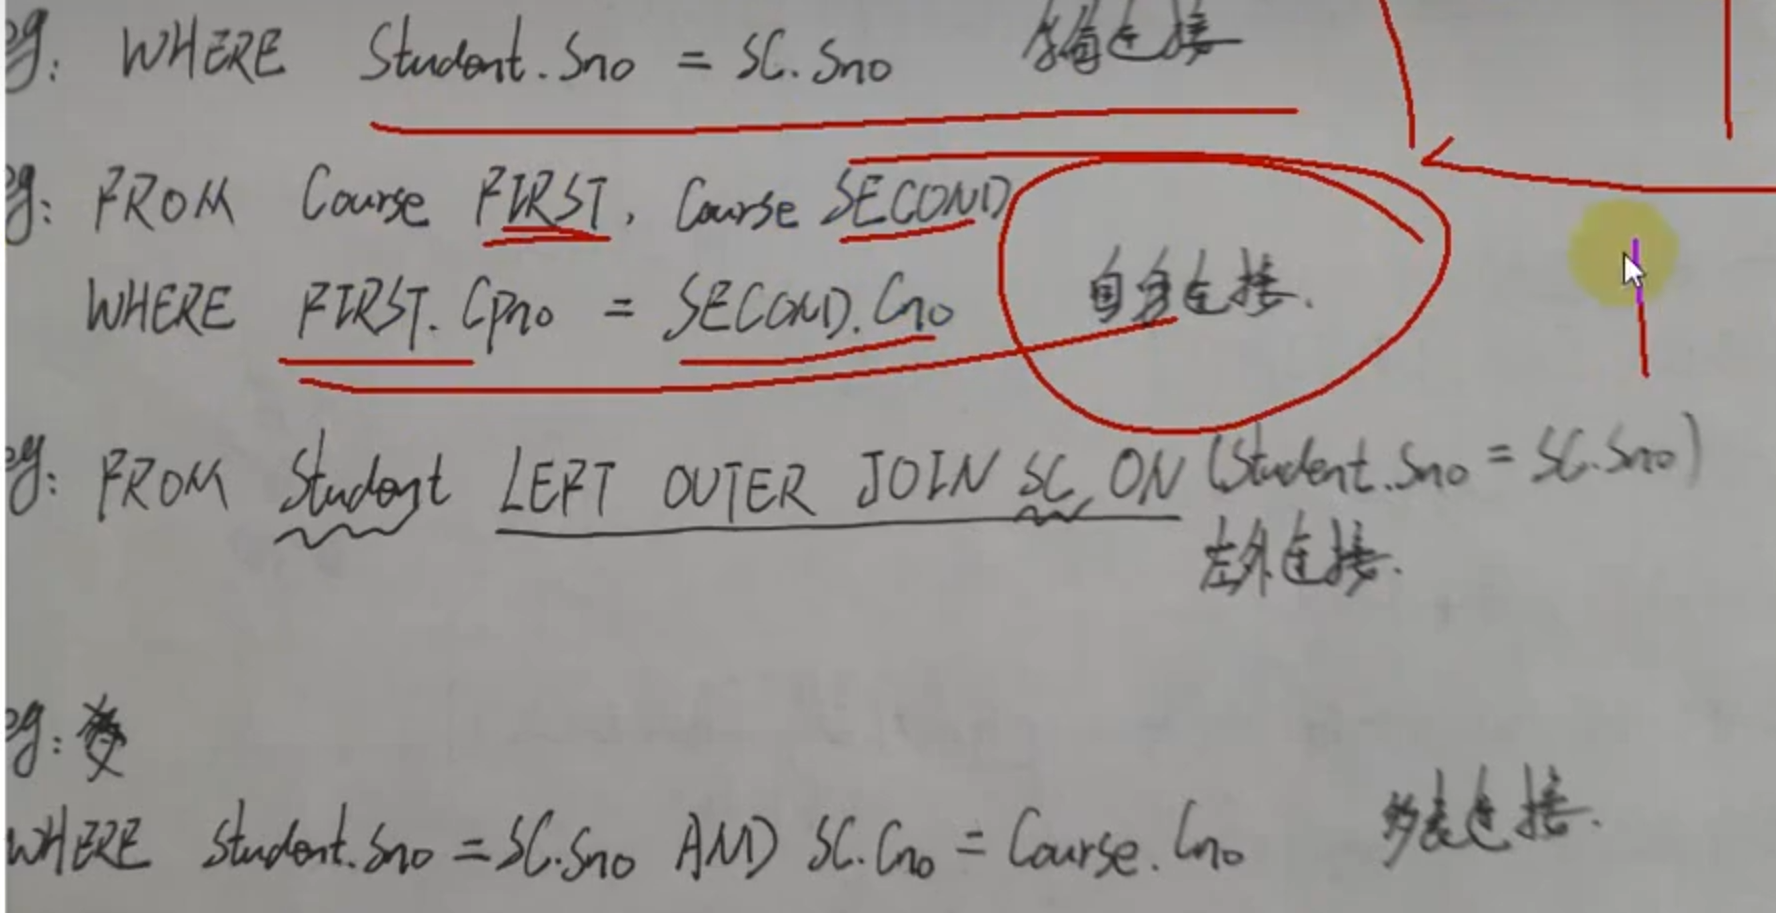 eg: WHERE Student.Sno = SC.Sno 等值连接
eg: FROM Course FIRST, Course SECOND
WHERE FIRST.Cpno = SECOND.Cno 自身连接.
eg: FROM Student LEFT OUTER JOIN SC ON (Student.Sno = SC.Sno)
左外连接.
eg:
WHERE Student.Sno = SC.Sno AND SC.Cno = Course.Cno 多表连接.